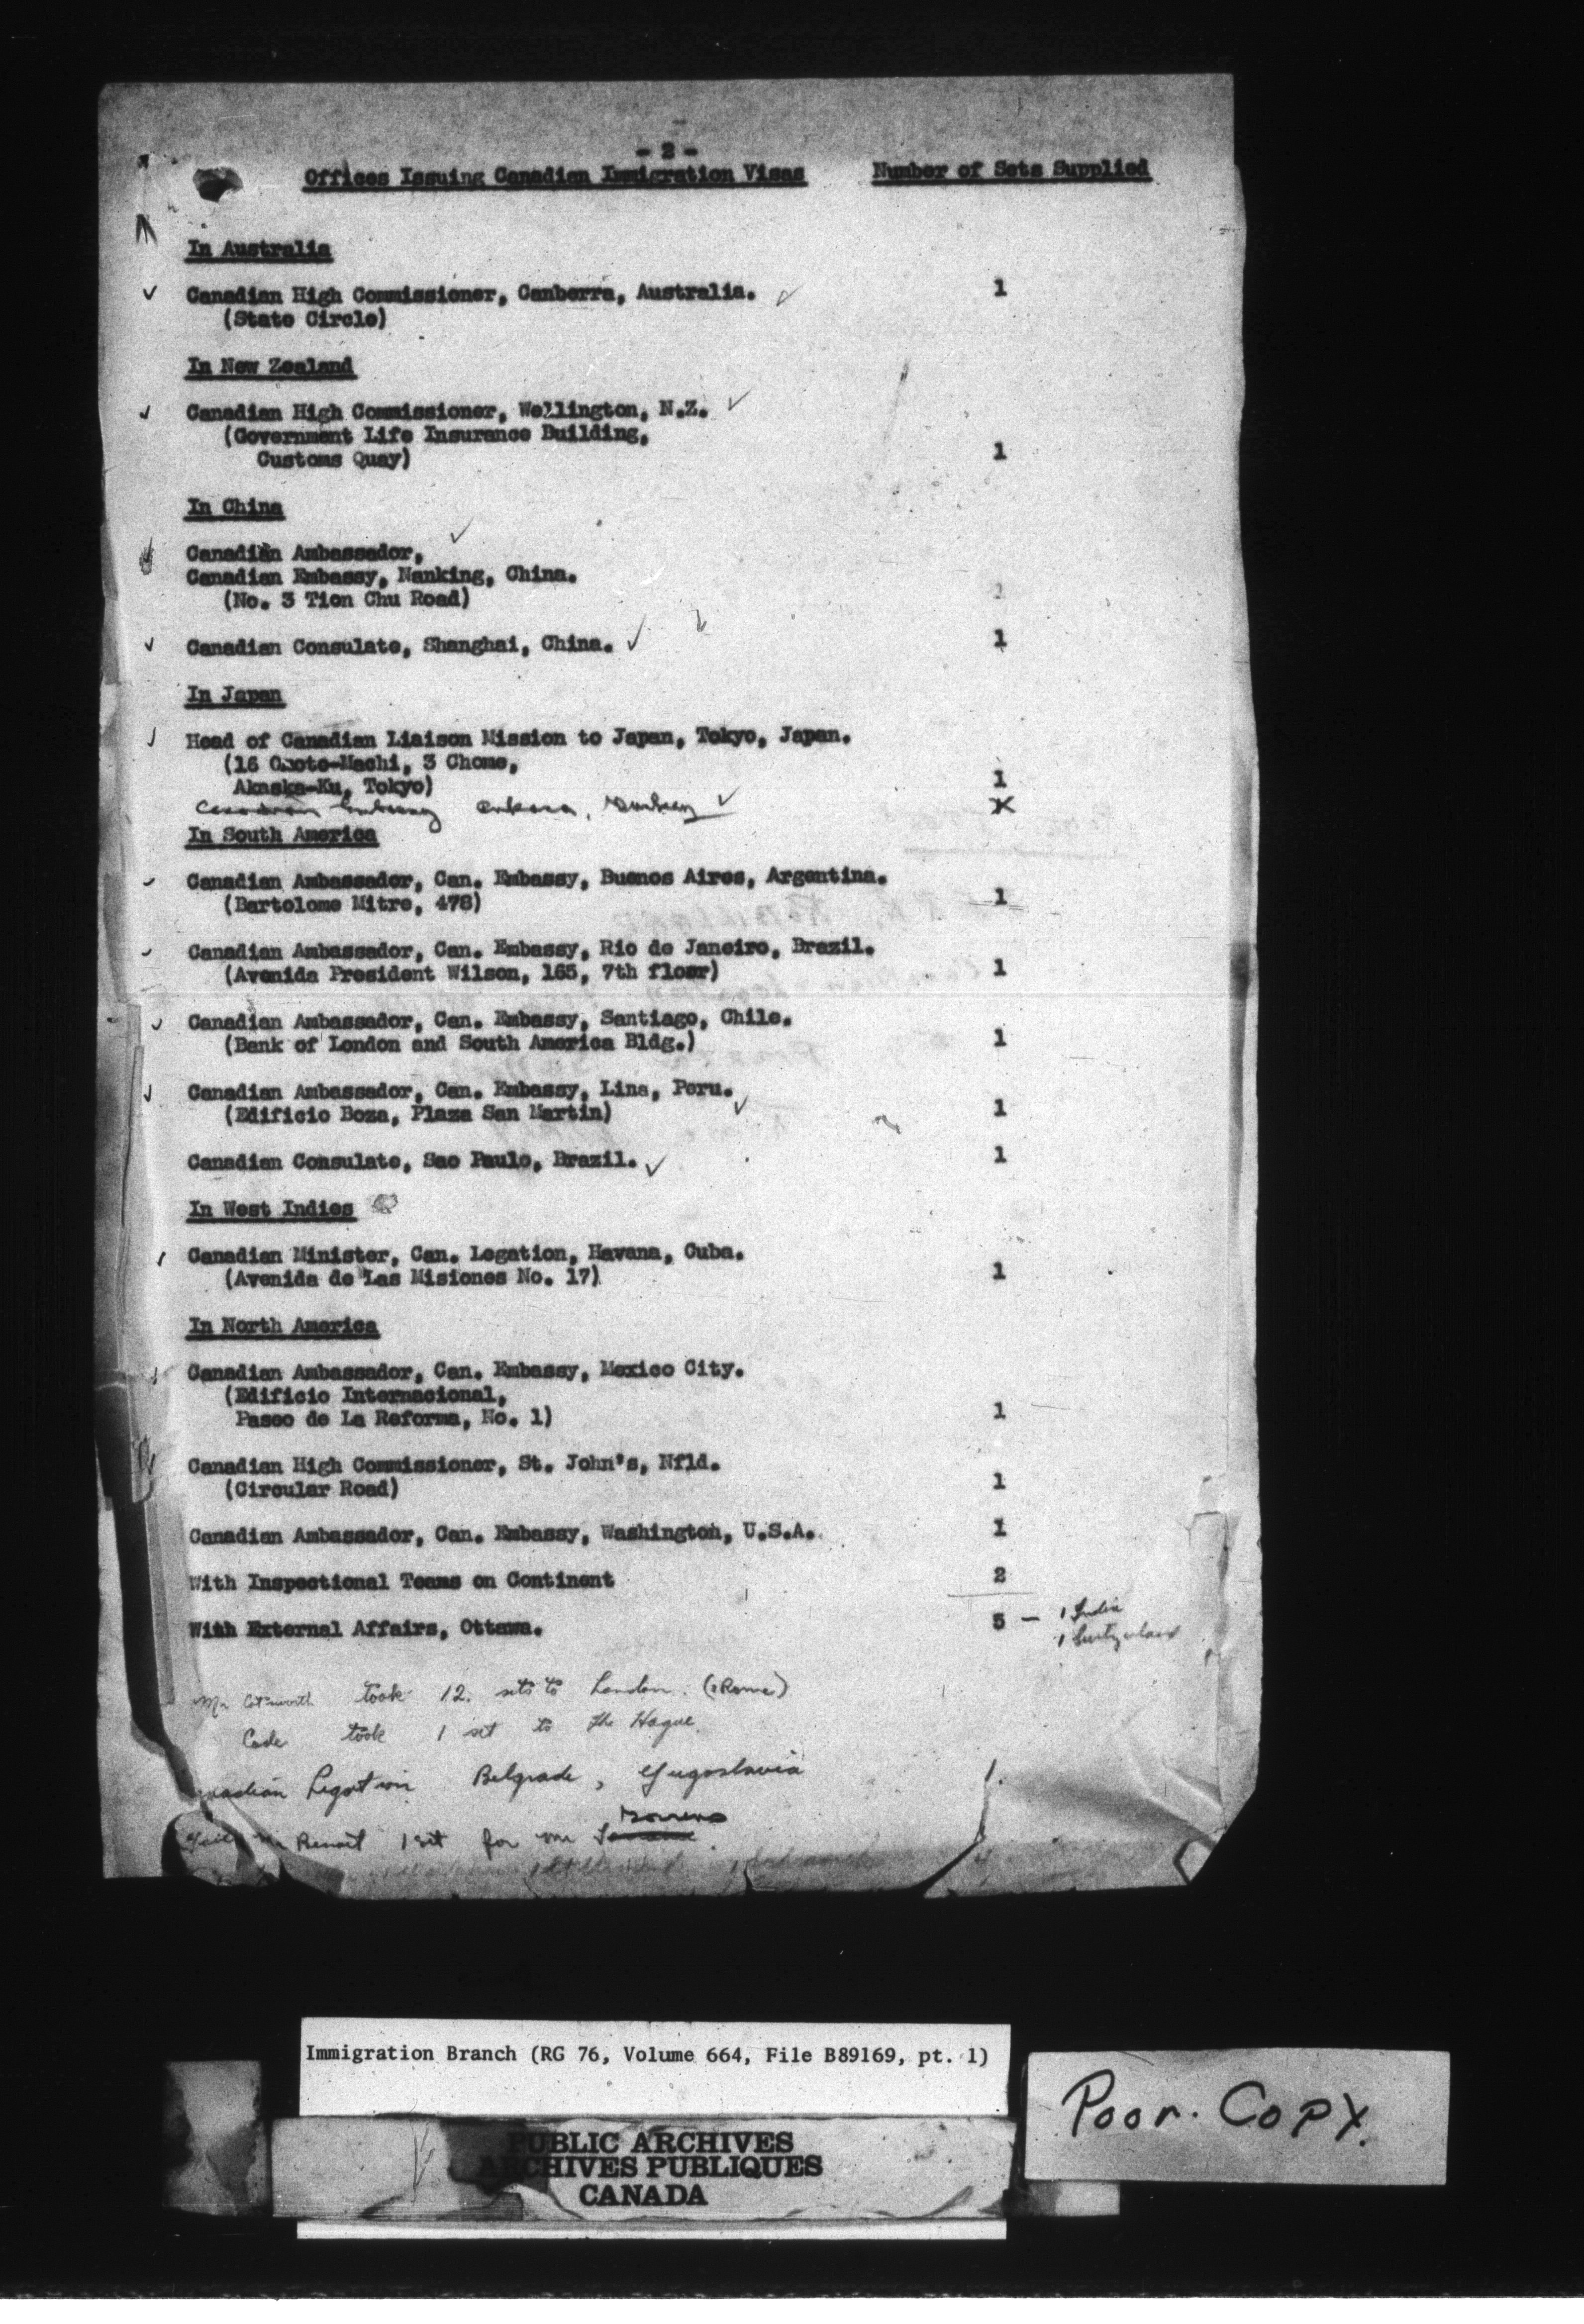 - 2 -
Offices Issuing Canadian Immigration Visas Number of Sets Supplied
In Australia
Canadian High Commissioner, Canberra, Australia. 1
(State Circle)
In New Zealand
Canadian High Commissioner, Wellington, N.Z.
(Government Life Insurance Building,
Customs Quay) 1
In China
Canadian Ambassador,
Canadian Embassy, Nanking, China.
(No. 3 Tien Chu Road) 1
Canadian Consulate, Shanghai, China. 1
In Japan
Head of Canadian Liaison Mission to Japan, Tokyo, Japan.
(16 Omote-Machi, 3 Chome,
Akaska-Ku, Tokyo) 1
Canadian Embassy Ankara, Turkey
In South America
Canadian Ambassador, Can. Embassy, Buenos Aires, Argentina.
(Bartolome Mitre, 478) 1
Canadian Ambassador, Can. Embassy, Rio de Janeiro, Brazil.
(Avenida President Wilson, 165, 7th floor) 1
Canadian Ambassador, Can. Embassy, Santiago, Chile.
(Bank of London and South America Bldg.) 1
Canadian Ambassador, Can. Embassy, Lima, Peru.
(Edificio Boza, Plaza San Martin) 1
Canadian Consulate, Sao Paulo, Brazil. 1
In West Indies
Canadian Minister, Can. Legation, Havana, Cuba.
(Avenida de Las Misiones No. 17) 1
In North America
Canadian Ambassador, Can. Embassy, Mexico City.
(Edificio Internacional,
Paseo de La Reforma, No. 1) 1
Canadian High Commissioner, St. John's, Nfld.
(Circular Road) 1
Canadian Ambassador, Can. Embassy, Washington, U.S.A. 1
With Inspectional Teams on Continent 2
With External Affairs, Ottawa. 5 - 1 India
1 Switzerland
Mr took 12 sets to London. (Rome)
took 1 set to the Hague.
Canadian Legation Belgrade, Yugoslavia 1.
1 set for
Immigration Branch (RG 76, Volume 664, File B89169, pt. 1)
PUBLIC ARCHIVES
ARCHIVES PUBLIQUES
CANADA
Poor. Copy.